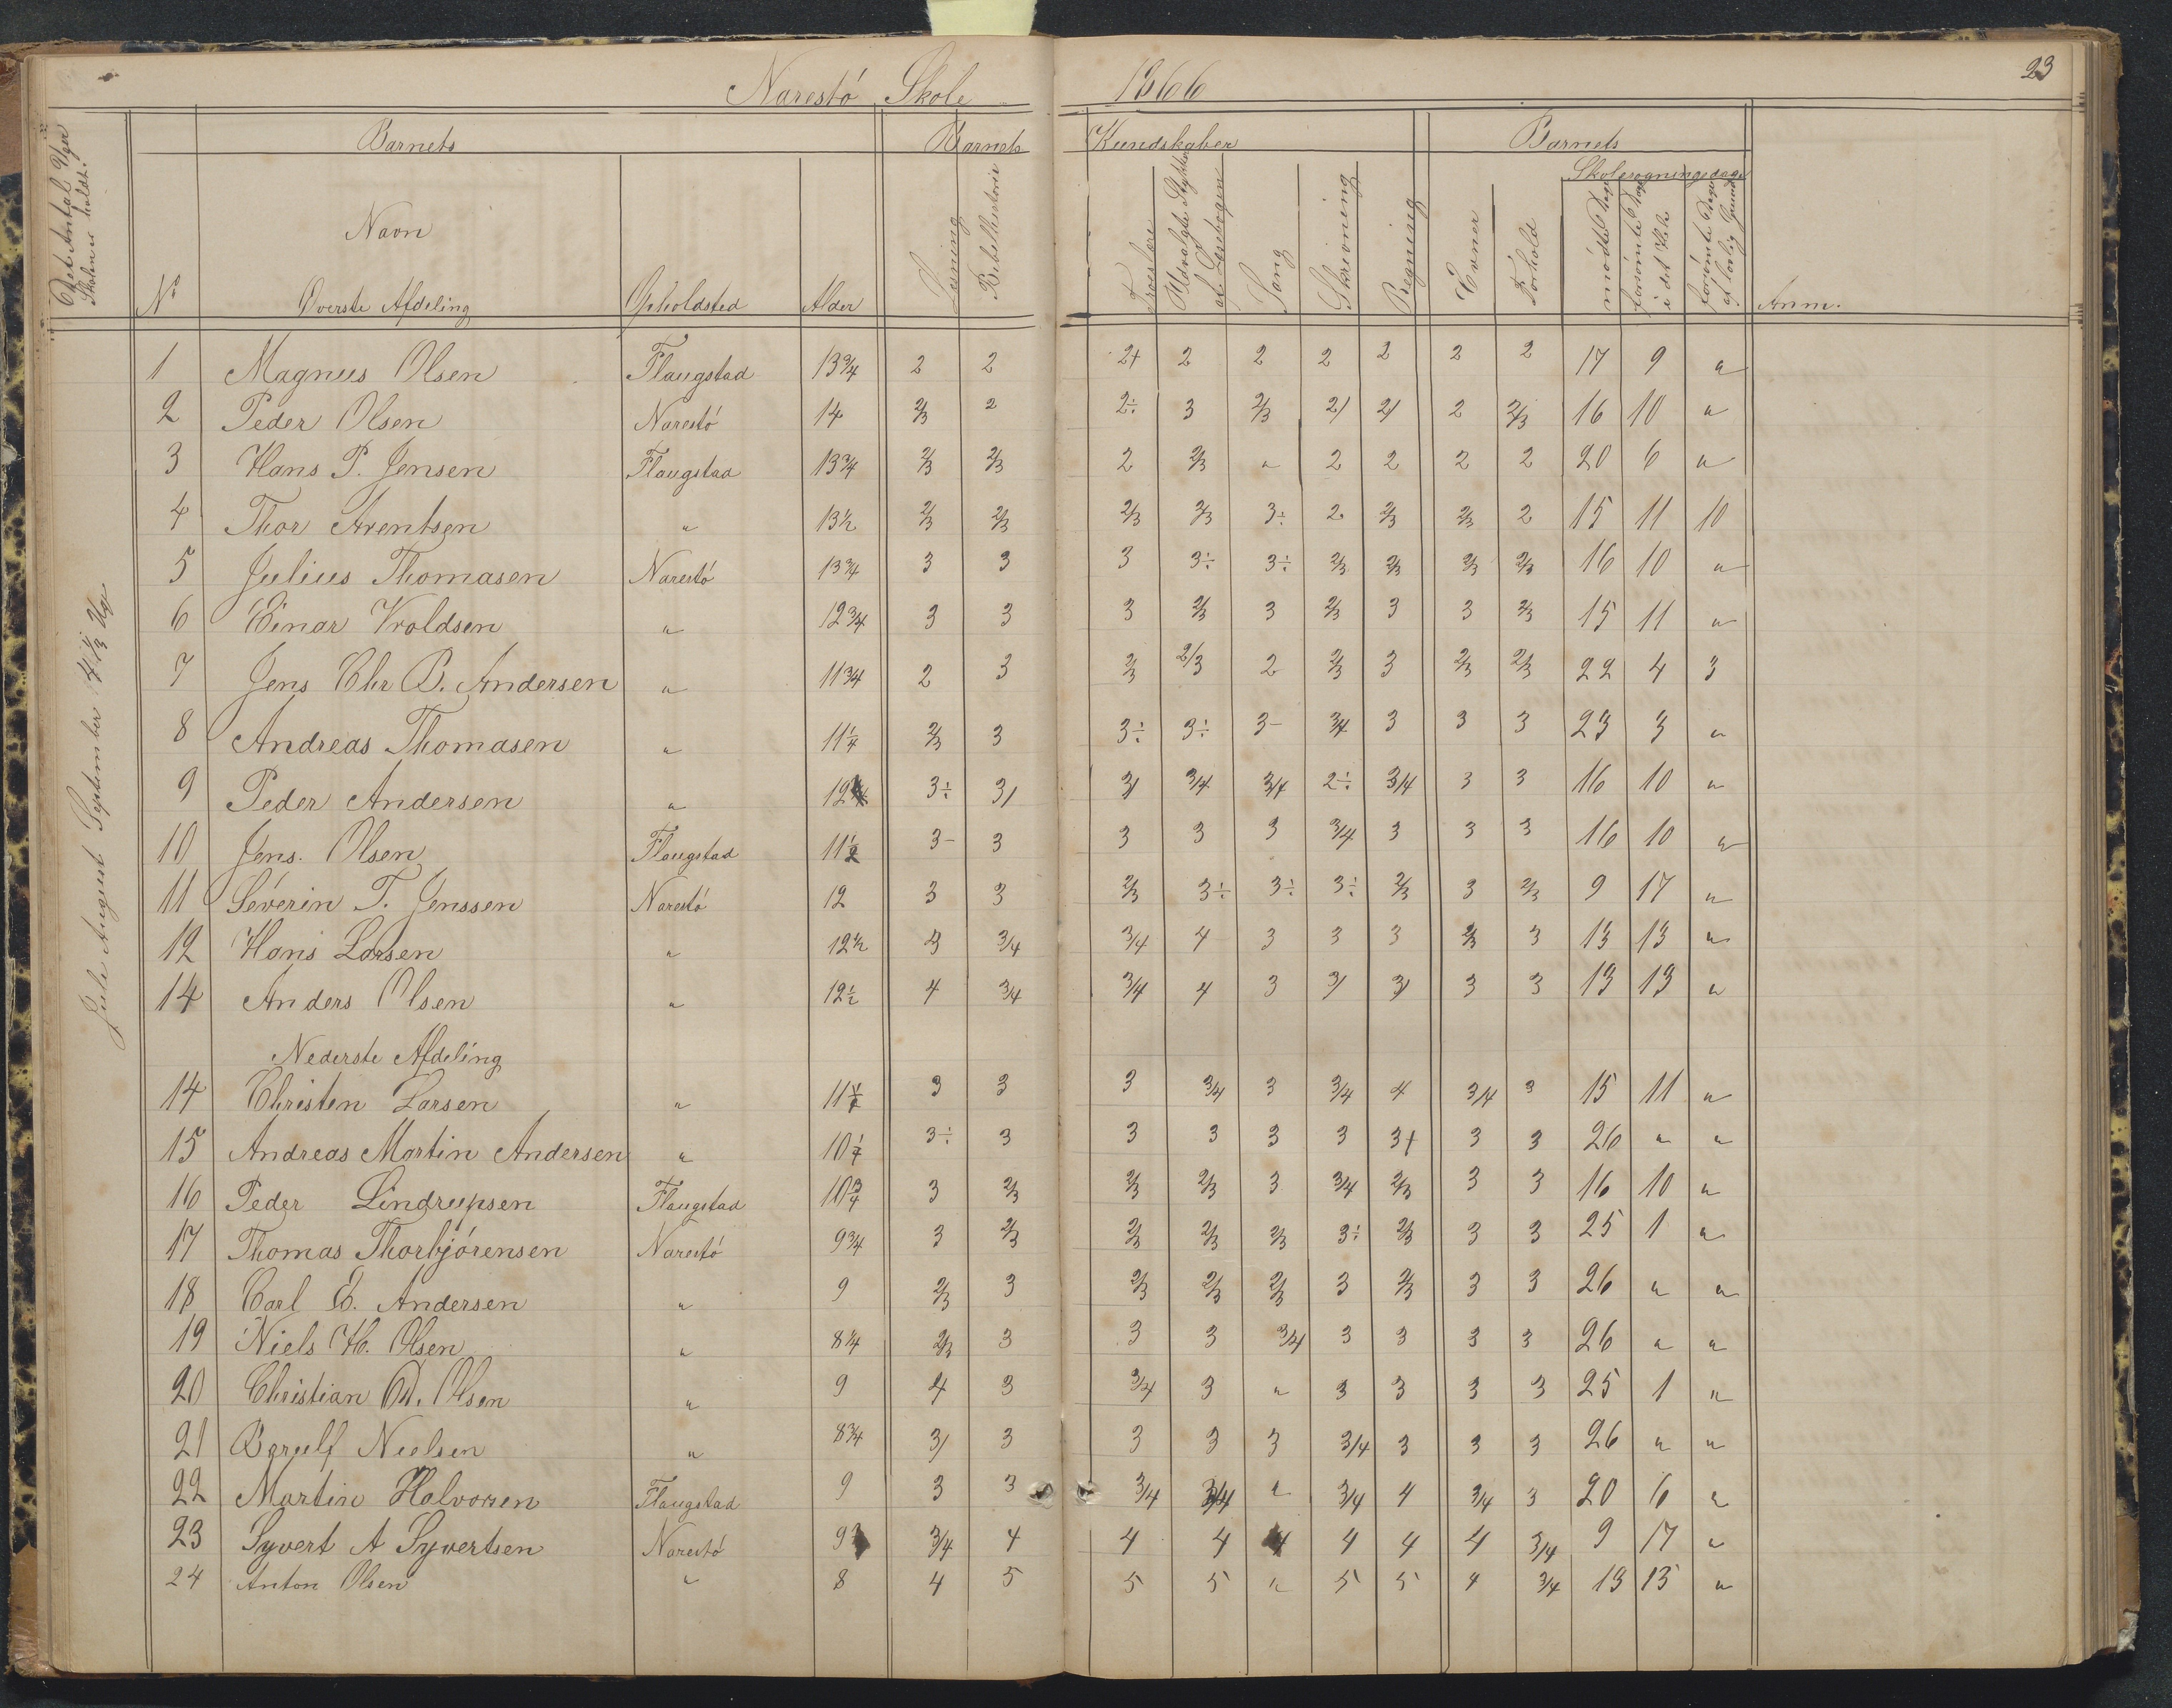 Narestö Skole 1866 23
Det Antal Uger Skolen er holdt.
Barnets Barnets Kundskaber Barnets
Skolesøgningsdage
No Navn Øverste Afdeling Opholdsted Alder Læsning Bibelhistorie Troeslære Udvalgte Stykker af Læsebogen Sang Skrivning Regning Evner Forhold mødte Dage forsömte Dage i det Hele forsömte Dage af lovlig Grund Anm.
Juli August September 4 1/3 Uge
1 Magnus Olsen Flaugstad 13 3/4 2 2 2+ 2 2 2 2 2 2 17 9 "
2 Peder Olsen Narestö 14 2/3 2 2÷ 3 2/3 2/ 2/ 2 2/3 16 10 "
3 Hans P. Jensen Flaugstad 13 3/4 2/3 2/3 2 2/3 " 2 2 2 2 20 6 "
4 Thor Arentsen " 13 1/2 2/3 2/3 2/3 2/3 3÷ 2 2/3 2/3 2 15 11 10
5 Julius Thomasen Narestö 13 3/4 3 3 3 3÷ 3÷ 2/3 2/3 2/3 2/3 16 10 "
6 Einar Wroldsen " 12 3/4 3 3 3 2/3 3 2/3 3 3 2/3 15 11 "
7 Jens Chr B. Andersen " 11 3/4 2 3 2/3 2/3 2 2/3 3 2/3 2/3 22 4 3
8 Andreas Thomasen " 11 1/4 2/3 3 3÷ 3÷ 3- 3/4 3 3 3 23 3 "
9 Peder Andersen " 12 3÷ 3/ 3/ 3/4 3/4 2÷ 3/4 3 3 16 10 "
10 Jens Olsen Flaugstad 11 1/2 3- 3 3 3 3 3/4 3 3 3 16 10 "
11 Séverin T. Jenssen Narestö 12 3 3 2/3 3÷ 3÷ 3÷ 2/3 3 2/3 9 17 "
12 Hans Larsen " 12 1/2 3/4 3/4 4 3 3 3 2/3 3 13 13 "
14 Anders Olsen " 12 1/2 4 3/4 3/4 4 3 3/ 3/ 3 3 13 13 "
Nederste Afdeling
14 Christen Larsen " 11 3 3 3 3/4 3 3/4 4 3/4 3 15 11 "
15 Andreas Martin Andersen " 10 3÷ 3 3 3 3 3 3+ 3 3 26 " "
16 Peder Lindrupsen Flaugstad 10 3/4 3 2/3 2/3 2/3 3 3/4 2/3 3 3 16 10 "
17 Thomas Thorbjörensen Narestö 9 3/4 3 2/3 2/3 2/3 2/3 3÷ 2/3 3 3 25 1 "
18 Carl E. Andersen " 9 2/3 3 2/3 2/3 2/3 3 2/3 3 3 26 " "
19 Niels H. Olsen " 8 1/4 2/3 3 3 3 3/4 3 3 3 3 26 " "
20 Christian Olsen " 9 4 3 3/4 3 " 3 3 3 3 25 1 "
21 Bærulf Nielsen " 8 3/4 3/ 3 3 3 3 3/4 3 3 3 26 " "
22 Martin Halvorsen Flaugstad 9 3 3 3/4 3/4 " 3/4 4 3/4 3 20 6 "
23 Syvert A Syvertsen Narestö 9 3/4 4 4 4 4 4 4 4 3/4 9 17 "
24 Anton Olsen " 8 4 5 5 5 " 5 5 4 3/4 13 13 "